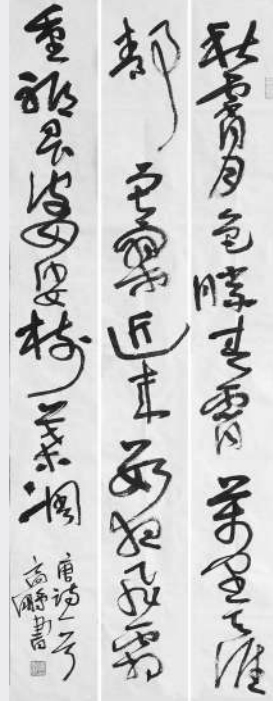 秋宵月色勝春宵萬里天涯
靜寂寥近來數夜飛霜
重祇畏婆娑樹葉凋
唐詩一首
高鵬書